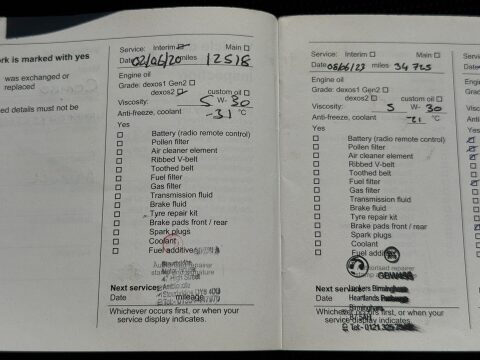 rk is marked with yes
was exchanged or
replaced
ed details must not be
Service: Interim Main
Date 02/06/20 miles 12518
Engine oil
Grade: dexos1 Gen2
dexos2 custom oil
Viscosity: 5 W- 30
Anti-freeze, coolant -31 °C
Yes
Battery (radio remote control)
Pollen filter
Air cleaner element
Ribbed V-belt
Toothed belt
Fuel filter
Gas filter
Transmission fluid
Brake fluid
Tyre repair kit
Brake pads front / rear
Spark plugs
Coolant
Fuel additive
Next service:
Date mileage
Whichever occurs first, or when your
service display indicates.
Service: Interim Main
Date miles 34725
Engine oil
Grade: dexos1 Gen2
dexos2 custom oil
Viscosity: 5 W- 30
Anti-freeze, coolant °C
Yes
Battery (radio remote control)
Pollen filter
Air cleaner element
Ribbed V-belt
Toothed belt
Fuel filter
Gas filter
Transmission fluid
Brake fluid
Tyre repair kit
Brake pads front / rear
Spark plugs
Coolant
Fuel
Next service:
Birmingham
Heartlands
Date
Birmingham
Whichever occurs first, or when your
service display indicates.